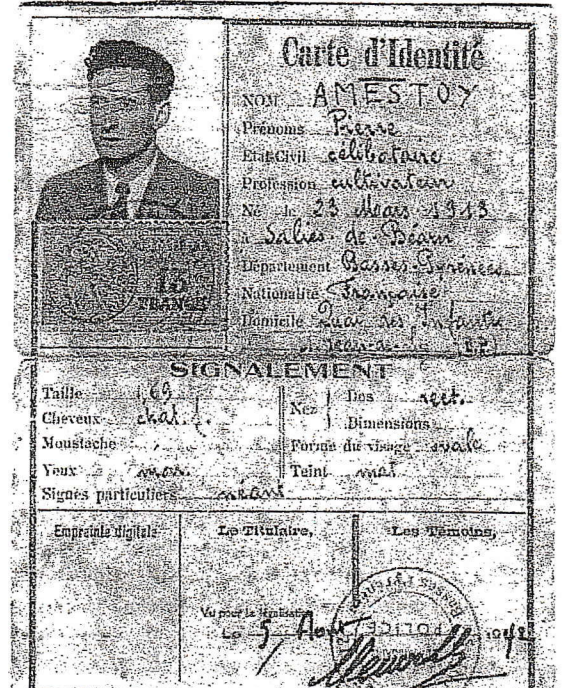 Carte d'Identité
NOM AMESTOY
Prénoms Pierre
Etat-Civil célibataire
Profession cultivateur
Né le 23 Mars 1913
à Salies de Béarn
Département Basses-Pyrénées
Nationalité Française
Domicile Quai des Infante
St Jean-de-Luz (B.P.)
15
FRANCS
SIGNALEMENT
Taille 1,69
Cheveux chat. f.
Moustache
Yeux mar.
Signes particuliers néant
Nez Dos rect.
Dimensions
Forme du visage ovale
Teint mat
Empreinte digitale
Le Titulaire,
Les Témoins,
Vu pour la légalisation
Le 5 Août 1942